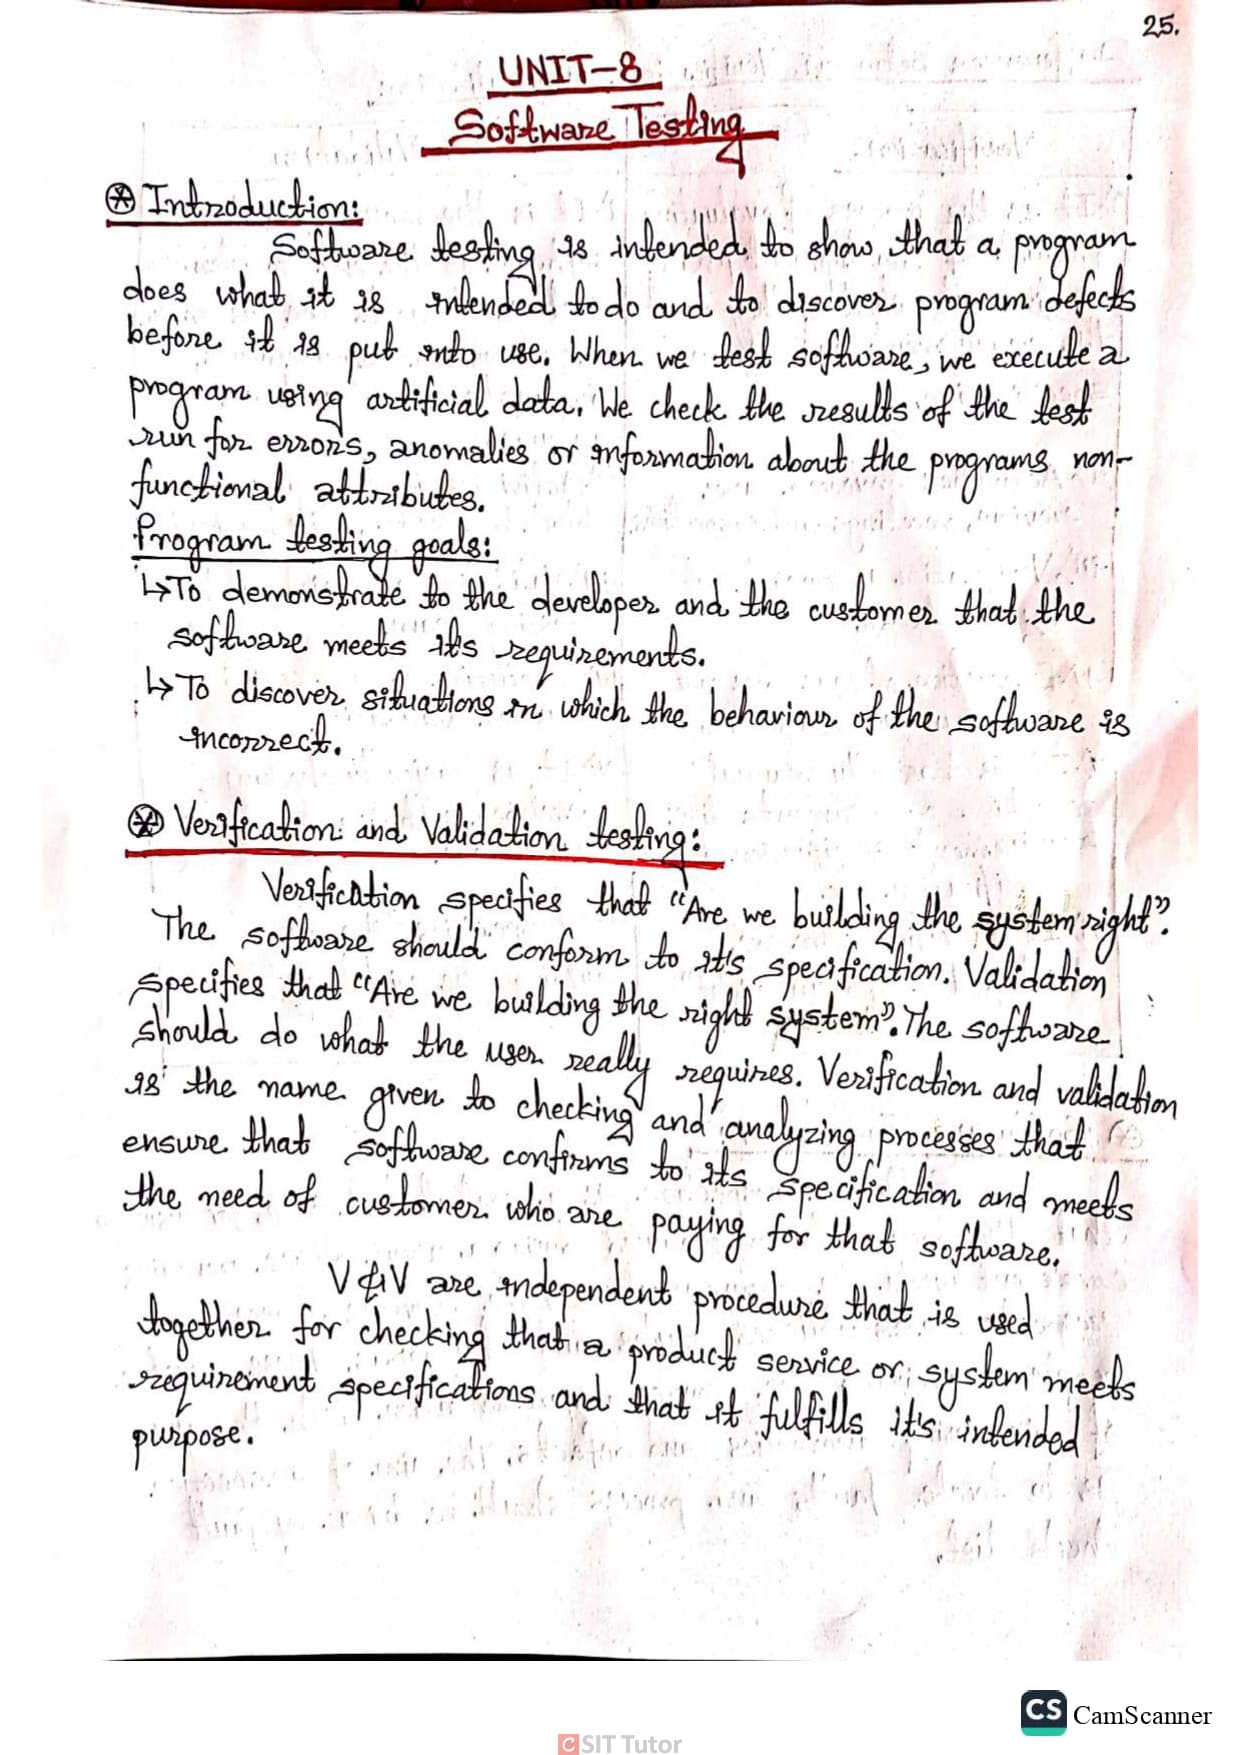 25.
UNIT-8
Software Testing
Introduction:
Software testing is intended to show that a program
does what it is intended to do and to discover program defects
before it is put into use. When we test software, we execute a
program using artificial data. We check the results of the test
run for errors, anomalies or information about the programs non-
functional attributes.
Program testing goals:
↳To demonstrate to the developer and the customer that the
software meets it's requirements.
↳To discover situations in which the behaviour of the software is
incorrect.
Verification and Validation testing:
Verification specifies that "Are we building the system right".
The software should conform to it's specification. Validation
specifies that "Are we building the right system". The software
should do what the user really requires. Verification and validation
is the name given to checking and analyzing processes that
ensure that software confirms to its specification and meets
the need of customer who are paying for that software.
V&V are independent procedure that is used
together for checking that a product service or system meets
requirement specifications and that it fulfills it's intended
purpose.
CS CamScanner
CSIT Tutor